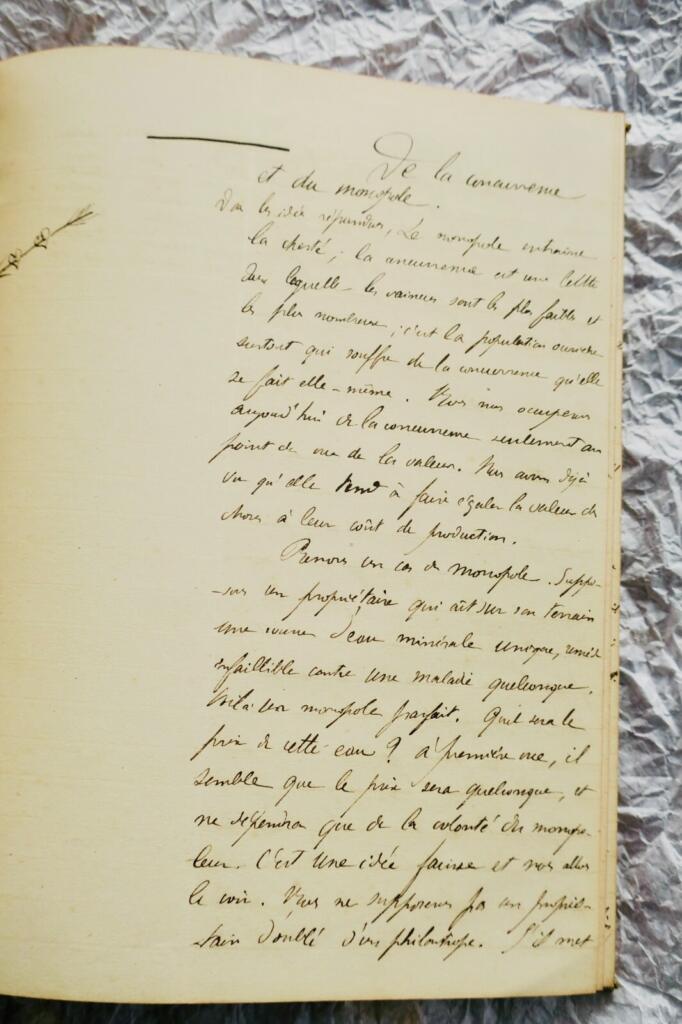 De la concurrence
et du monopole.
Dans les idées répandues, Le monopole entraîne
la cherté ; la concurrence est une lutte
dans laquelle les vaincus sont les plus faibles et
les plus nombreux ; c'est la population ouvrière
surtout qui souffre de la concurrence qu'elle
se fait elle-même. Nous nous occuperons
aujourd'hui de la concurrence seulement au
point de vue de la valeur. Nous avons déjà
vu qu'elle tend à faire égaler la valeur des
choses à leur coût de production.
Prenons un cas de monopole. Suppo-
-sons un propriétaire qui ait sur son terrain
une source d'eau minérale unique, remède
infaillible contre une maladie quelconque.
Voilà un monopole parfait. Quel sera le
prix de cette eau ? à première vue, il
semble que le prix sera quelconque, et
ne dépendra que de la volonté du monopo-
leur. C'est une idée fausse et nous allons
le voir. Nous ne supposerons pas un proprié-
-taire doublé d'un philantrope. S'il met